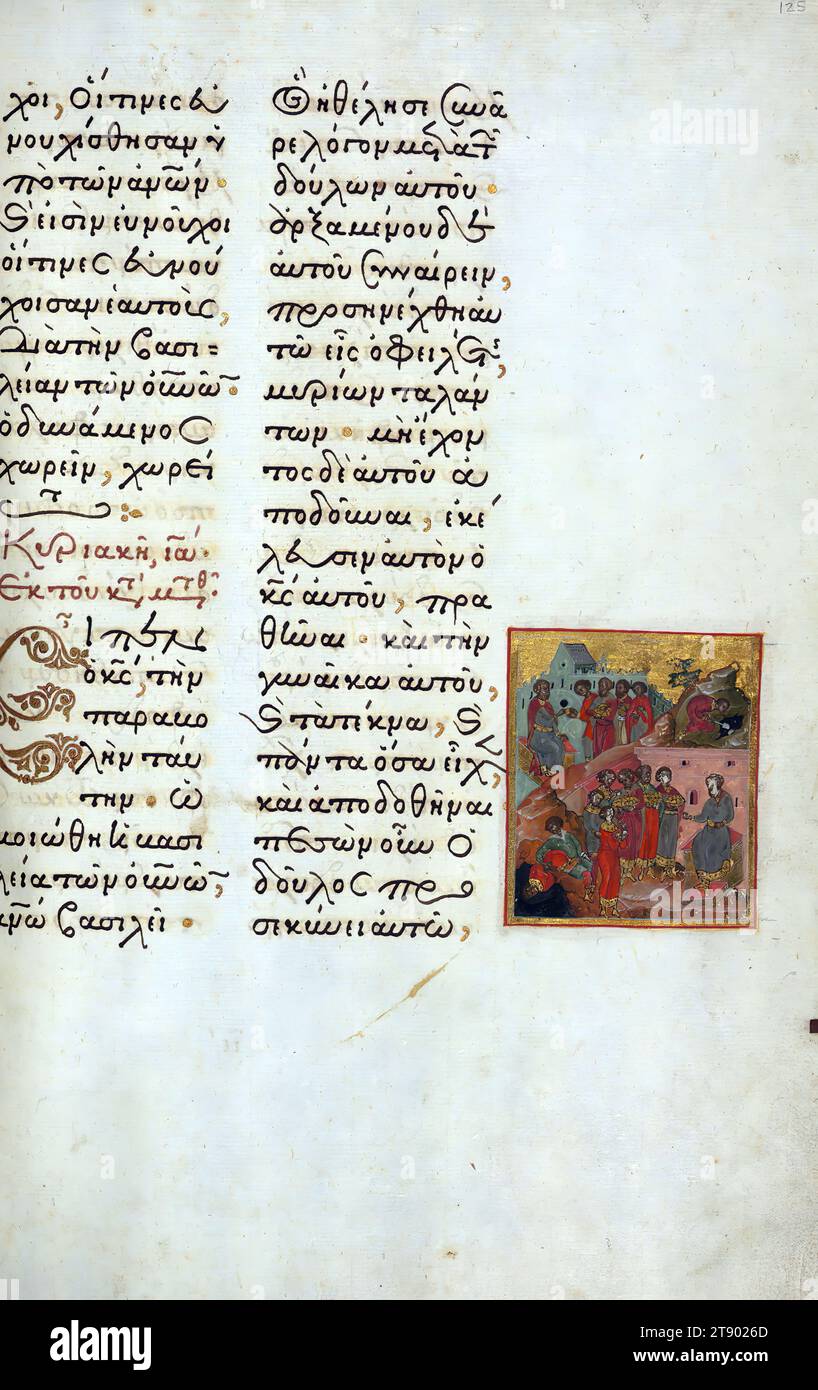 125
χοι, Οἵτινες ἐυ
νουχίσθησαν ὑ
πὸ τῶν ἀνῶν.
ϗ εἰσὶν ἐυνοῦχοι
οἵτινες ἐυνού
χοισαν ἑαυτοὶς,
Διὰ τὴν βασι=
λείαν τῶν οὐνῶ.
ὁ δυνάμενος
χωρεῖν, χωρεί
τ
Κυριακῆ, ια.
Εκ τοῦ κτ μτθ.
Εἶπεν
ὁ κς, τὴν
παραβο
λὴν ταύ
την. ὡ
μοιώθη ἡ βασι
λεία τῶν οὐνῶ,
ἀνῶ βασιλεῖ.
Ὃς ἠθέλησε συνᾶ
ρε λόγον μετὰ τ
δούλων αὐτοῦ.
ἀρξαμένου δὲ
αὐτοῦ συναίρειν,
προσηνέχθη αυ
τῶ εἷς ὀφειλέτ,
μυρίων ταλάν
των. μὴ ἔχον
τος δὲ αὐτοῦ ἀ
ποδοῦναι, ἐκέ
λευσεν αὐτὸν ὁ
κς αὐτοῦ, πρα
θῆναι. καὶ τὴν
γυναῖκα αὐτοῦ,
ϗ τὰ τέκνα, ϗ
πάντα ὅσα εἶχ,
καὶ ἀποδοθῆναι
πεσὼν οὖν ὁ
δοῦλος προ
σεκύνει αὐτῶ,
alamy
alamy
alamy
Image ID: 2T9026D
www.alamy.com